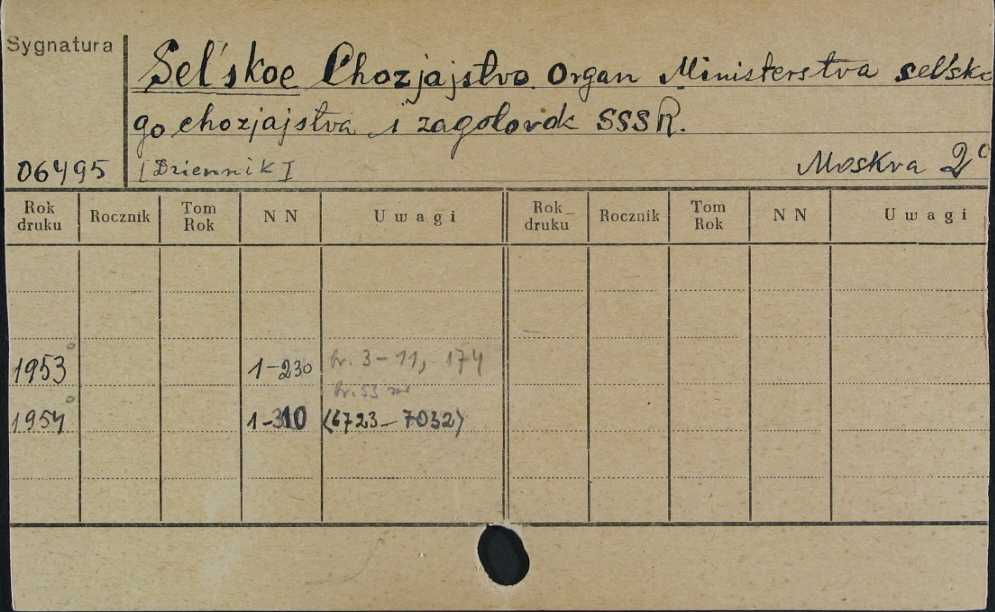 Sygnatura
Sel'skoe Chozjajstvo. Organ Ministerstva sel'sko
go chozjajstva i zagotovok SSSR.
06495 [Dziennik] Moskva 2°
Rok druku Rocznik Tom Rok N N Uwagi Rok druku Rocznik Tom Rok N N Uwagi
1953° 1-230 br. 3-11, 174
br. 53
1954° 1-310 (6723-7032)